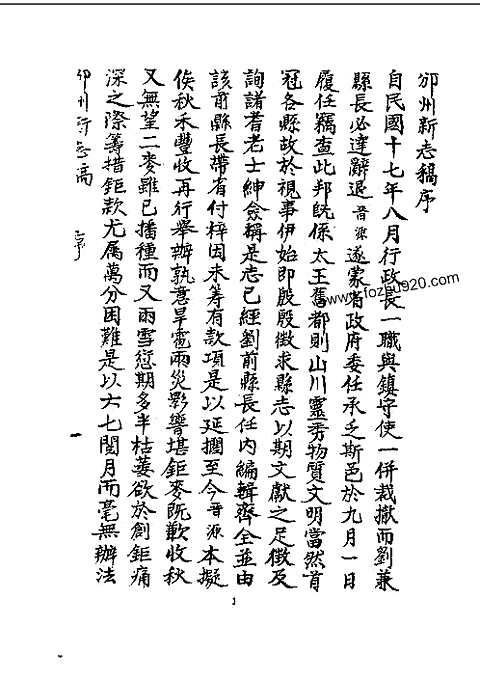 邠州新志稿序
自民國十七年八月行政長一職與鎮守使一併裁撤而劉兼
縣長必達辭退晋源遂蒙省政府委任承乏斯邑於九月一日
履任竊查此邦既係太王舊都則山川靈秀物質文明當然首
冠各縣故於視事伊始即殷殷徵求縣志以期文獻之足徵及
詢諸耆老士紳僉稱是志已經劉前縣長任內編輯齊全並由
該前縣長帶省付梓因未籌有款項是以延擱至今晋源本擬
俟秋禾豐收再行舉辦孰意旱雹雨災影響堪鉅麥既歉收秋
又無望二麥雖已播種而又雨雪愆期多半枯萎欲於創鉅痛
深之際籌措鉅款尤属萬分困難是以六七閱月而毫無辦法
邠州新志稿
序
一
1
www.fozhu920.com